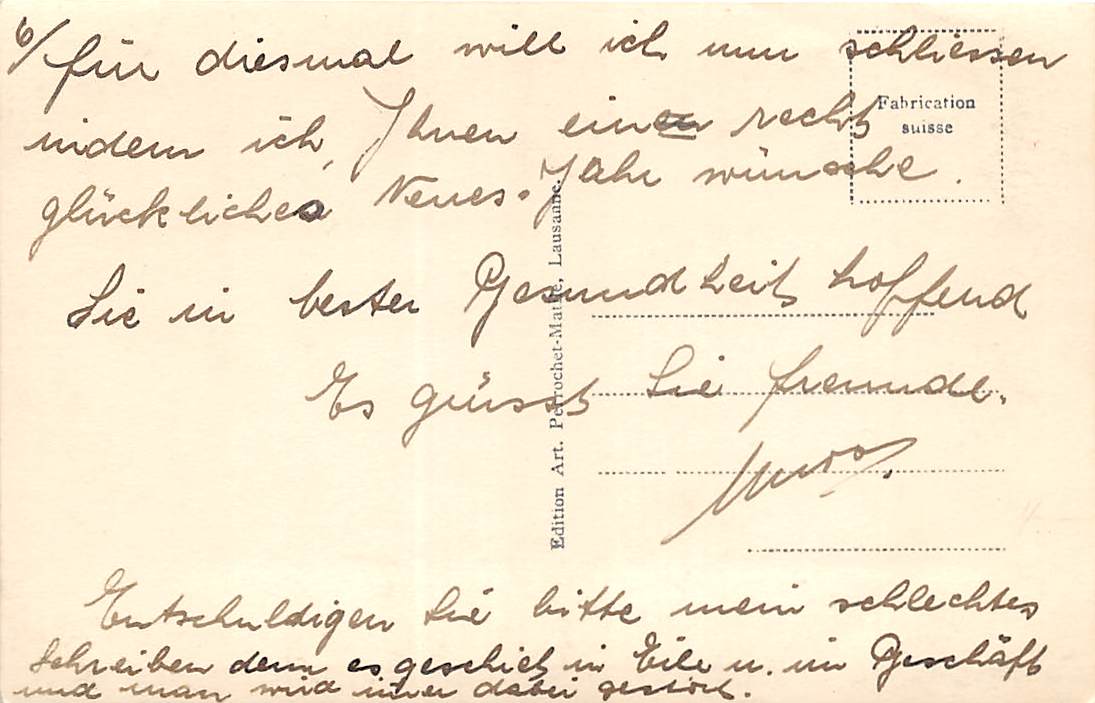 6/ für diesmal will ich nun schliessen
indem ich, Ihnen ein recht
glückliches Neues-Jahr wünsche.
Sie in bester Gesundheit hoffend
Es grüsst Sie freundl.
Entschuldigen Sie bitte mein schlechtes
Schreiben denn es geschieht in Eile u. im Geschäft
und man wird immer dabei gestört.
Fabrication
suisse
Edition Art. Perrochet-Matile, Lausanne.